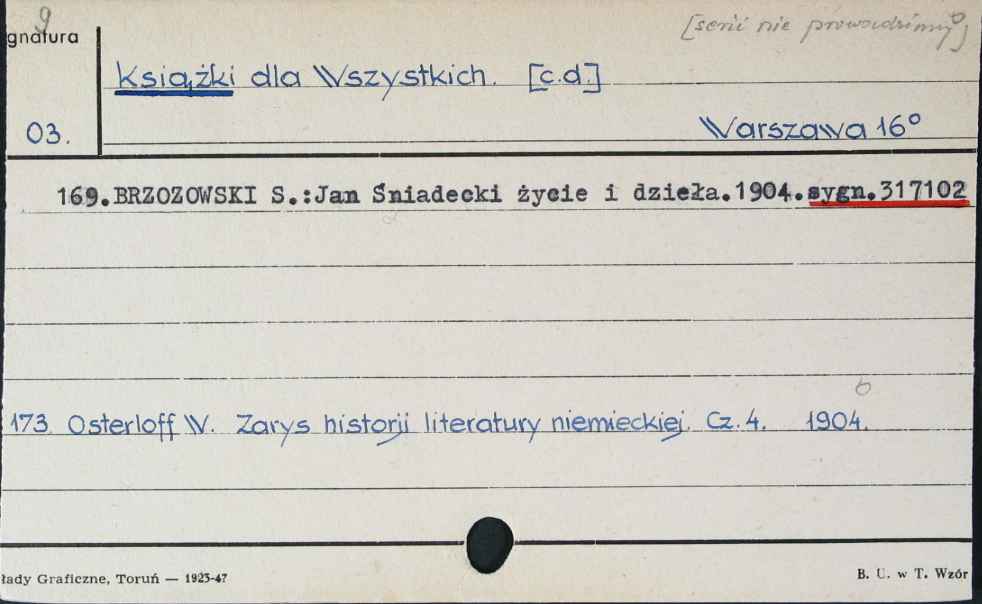 9
[serii nie prowadzimy]
gnatura
Książki dla Wszystkich. [c.d.]
03.
Warszawa 16°
169.BRZOZOWSKI S.:Jan Śniadecki życie i dzieła.1904.sygn.317102
173. Osterloff W. Zarys historji literatury niemieckiej. Cz. 4. 1904.
łady Graficzne, Toruń — 1923-47
B. U. w T. Wzór